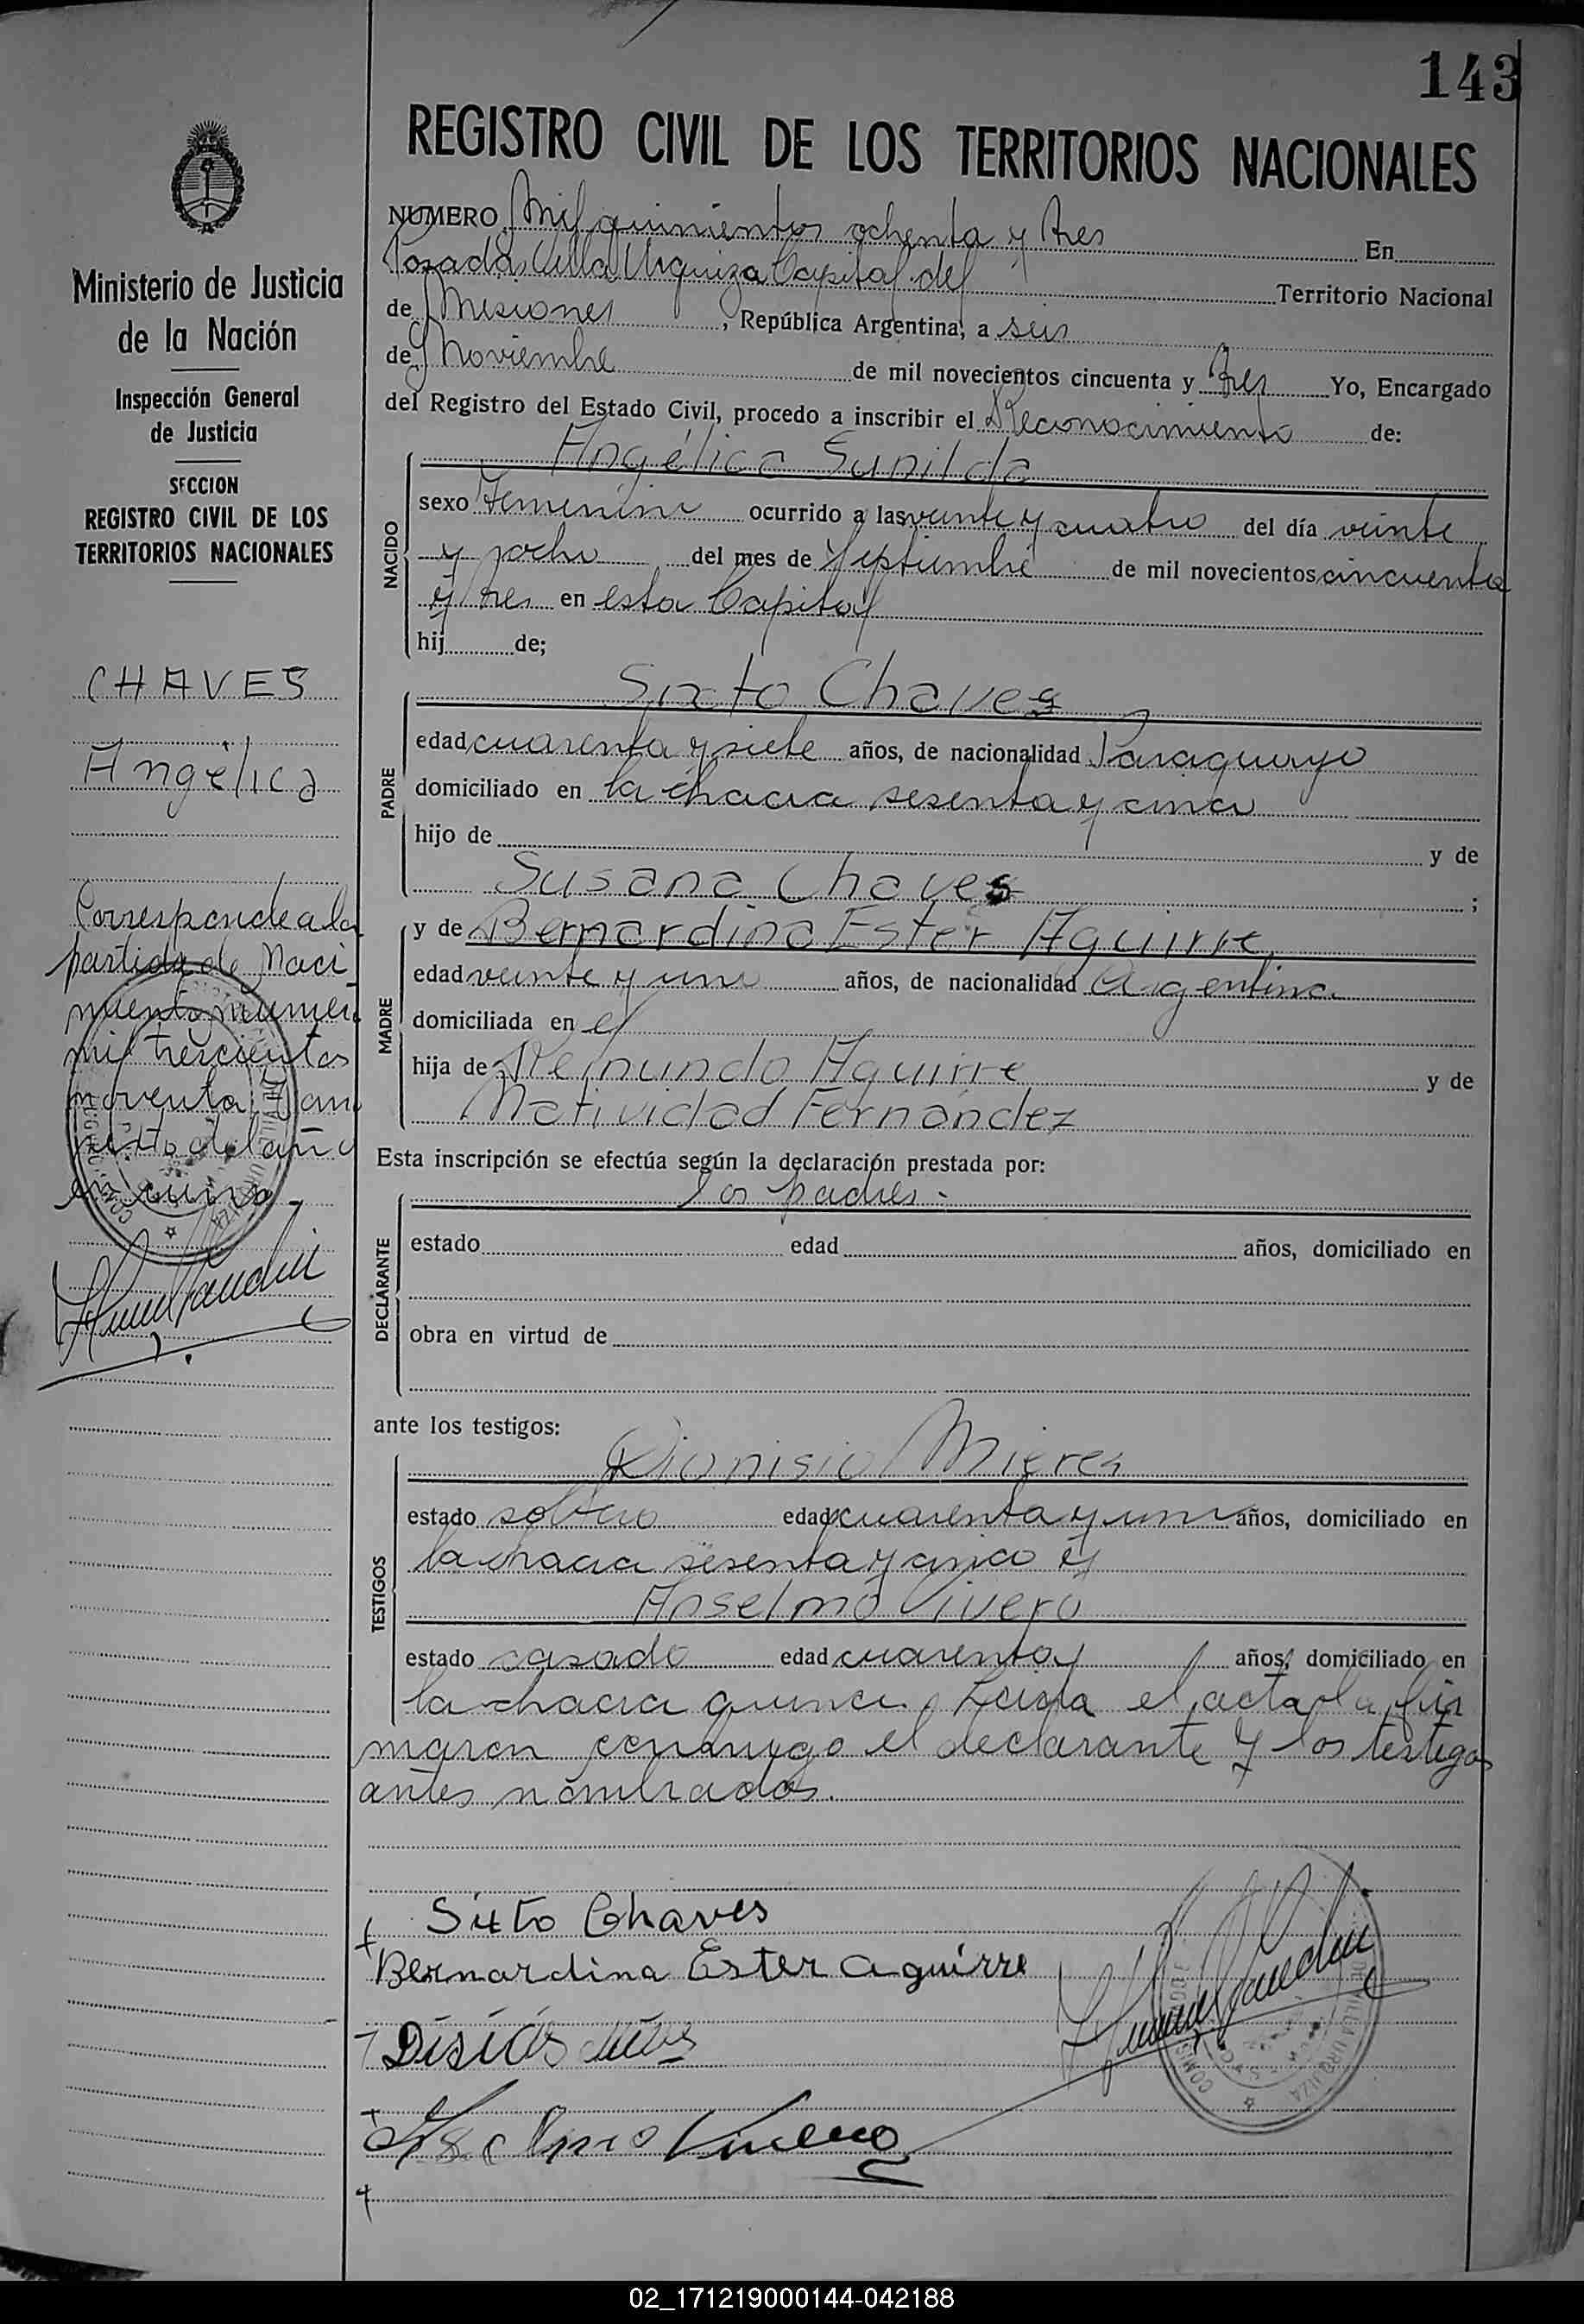 143
REGISTRO CIVIL DE LOS TERRITORIOS NACIONALES
Ministerio de Justicia
de la Nación
Inspección General
de Justicia
SECCION
REGISTRO CIVIL DE LOS
TERRITORIOS NACIONALES
CHAVES
Angélica
Corresponde a la
partida de Naci
miento número
mil trescientos
noventa
del año
en curso
NUMERO Mil quinientos ochenta y tres En
Posadas Villa Urquiza Capital del Territorio Nacional
de Misiones, República Argentina, a seis
de Noviembre de mil novecientos cincuenta y tres Yo, Encargado
del Registro del Estado Civil, procedo a inscribir el Reconocimiento de:
NACIDO
Angélica Sunilda
sexo Femenino ocurrido a las veinte y cuatro del día veinte
y ocho del mes de Septiembre de mil novecientos cincuenta
y tres en esta Capital
hij de;
PADRE
Sixto Chaves
edad cuarenta y siete años, de nacionalidad Paraguayo
domiciliado en la chacra sesenta y cinco
hijo de y de
Susana Chaves ;
MADRE
y de Bernardina Ester Aguirre
edad veinte y uno años, de nacionalidad Argentina
domiciliada en el
hija de Reimundo Aguirre y de
Natividad Fernández
Esta inscripción se efectúa según la declaración prestada por:
DECLARANTE
los padres.
estado edad años, domiciliado en
obra en virtud de
ante los testigos:
TESTIGOS
Dionisio Mieres
estado soltero edad cuarenta y uno años, domiciliado en
la chacra sesenta y cinco y
Anselmo Vivero
estado casado edad cuarenta años, domiciliado en
la chacra quince. Leida el acta la fir
maron conmigo el declarante y los testigos
antes nombrados.
Sixto Chaves
Bernardina Ester Aguirre
VILLA URQUIZA
02_171219000144-042188